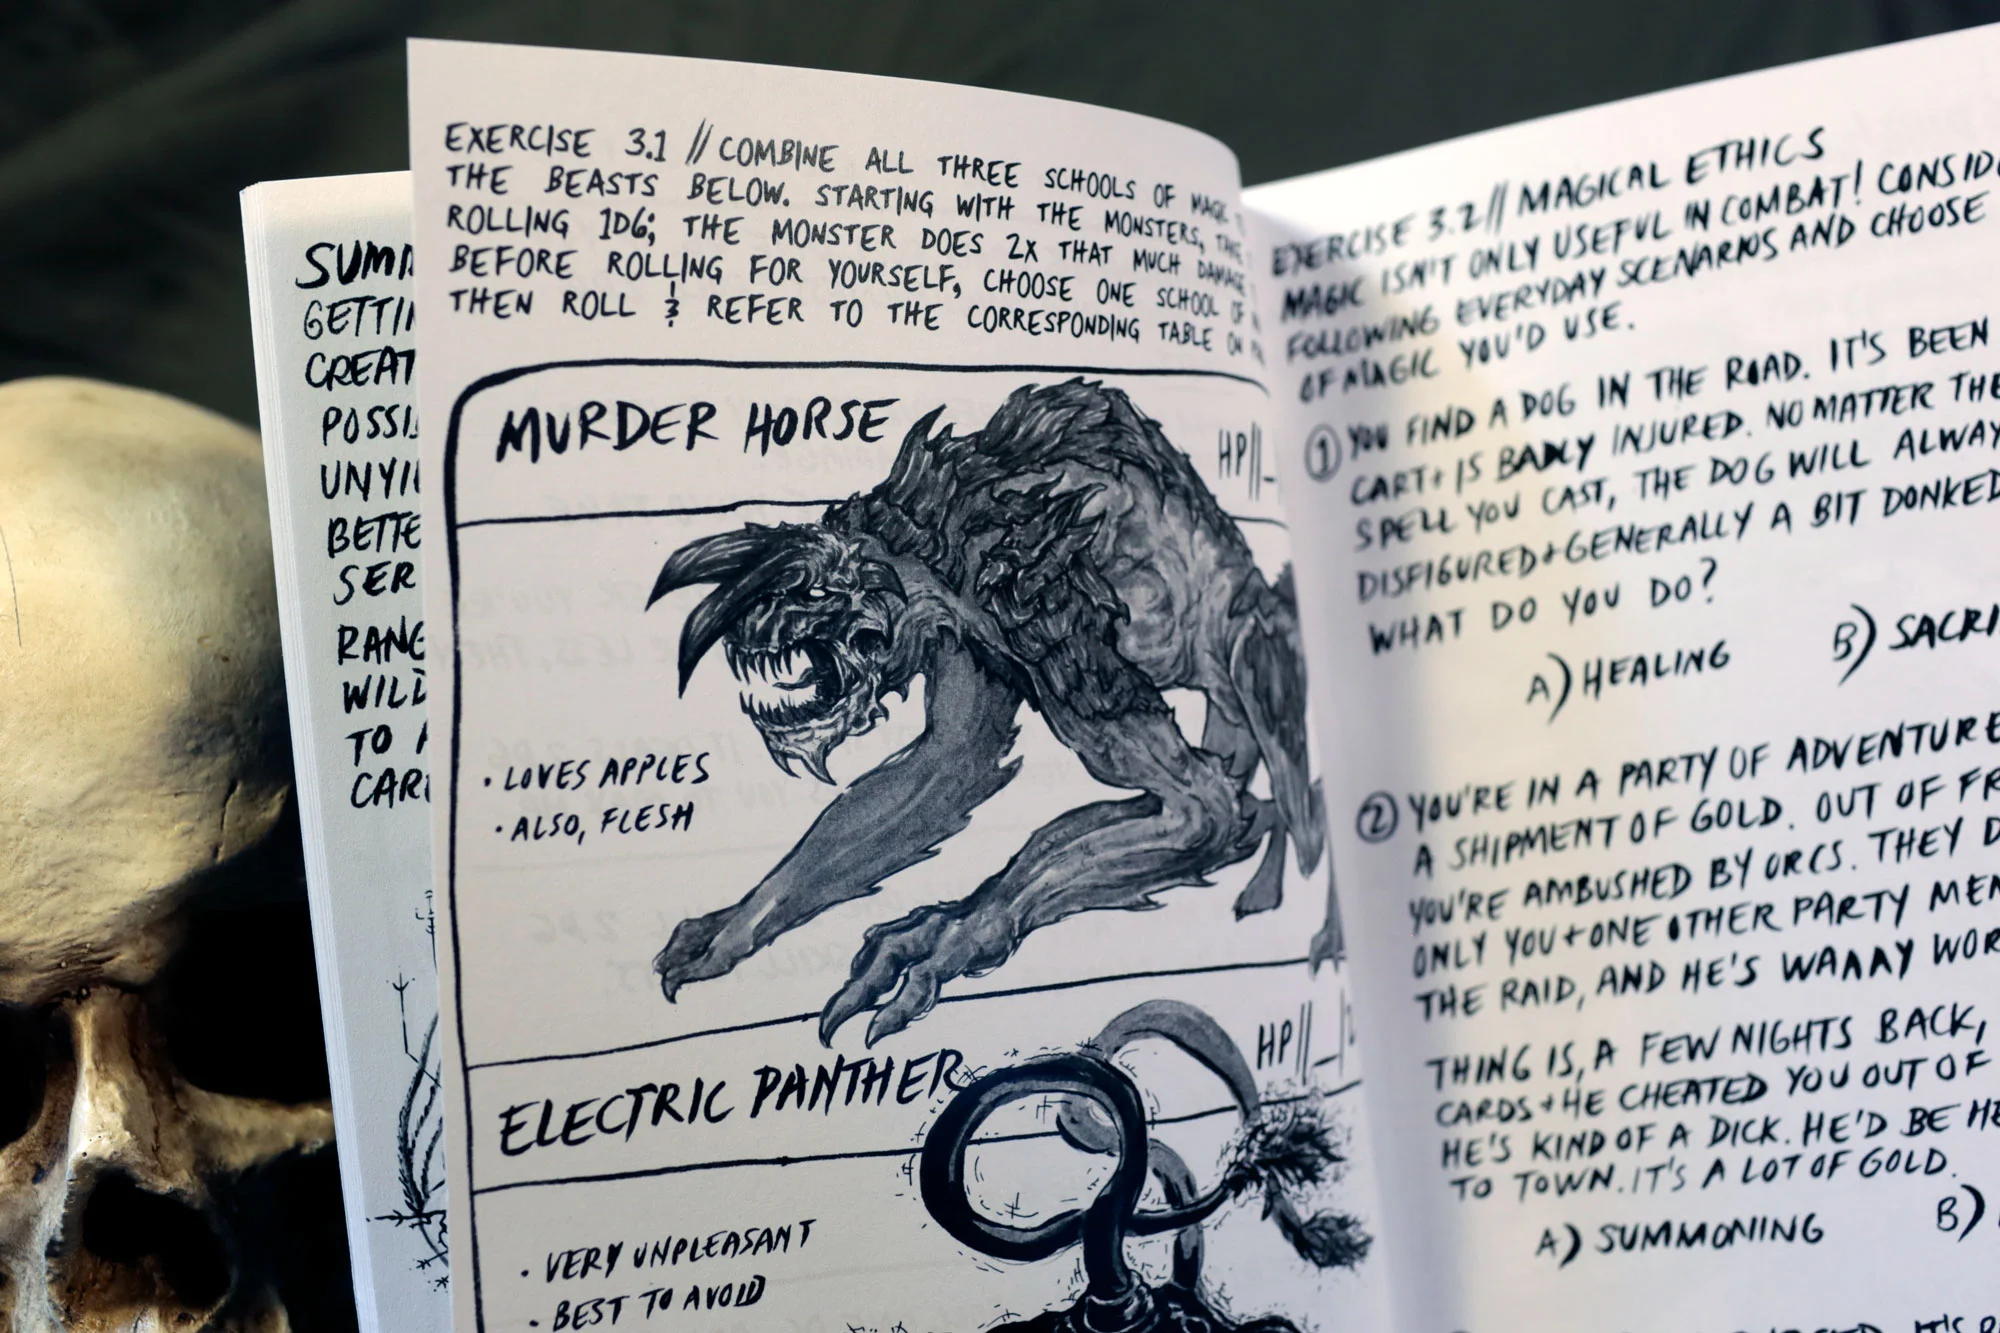 SUMM
GETTI
CREAT
POSSI
UNYI
BETTE
SER
RANG
WILL
TO
CAR
EXERCISE 3.1 // COMBINE ALL THREE SCHOOLS OF MAGIC
THE BEASTS BELOW. STARTING WITH THE MONSTERS, THE
ROLLING 1D6; THE MONSTER DOES 2X THAT MUCH DAMAGE
BEFORE ROLLING FOR YOURSELF, CHOOSE ONE SCHOOL OF
THEN ROLL & REFER TO THE CORRESPONDING TABLE ON
MURDER HORSE HP||_
• LOVES APPLES
• ALSO, FLESH
ELECTRIC PANTHER HP||_
• VERY UNPLEASANT
• BEST TO AVOID
EXERCISE 3.2 // MAGICAL ETHICS
MAGIC ISN'T ONLY USEFUL IN COMBAT! CONSID
FOLLOWING EVERYDAY SCENARIOS AND CHOOSE
OF MAGIC YOU'D USE.
① YOU FIND A DOG IN THE ROAD. IT'S BEEN
CART + IS BADLY INJURED. NO MATTER THE
SPELL YOU CAST, THE DOG WILL ALWAY
DISFIGURED + GENERALLY A BIT DONKED
WHAT DO YOU DO?
A) HEALING B) SACRI
② YOU'RE IN A PARTY OF ADVENTURE
A SHIPMENT OF GOLD. OUT OF FR
YOU'RE AMBUSHED BY ORCS. THEY D
ONLY YOU + ONE OTHER PARTY MEM
THE RAID, AND HE'S WAAAY WOR
THING IS, A FEW NIGHTS BACK,
CARDS + HE CHEATED YOU OUT OF
HE'S KIND OF A DICK. HE'D BE HE
TO TOWN. IT'S A LOT OF GOLD.
A) SUMMONING B)